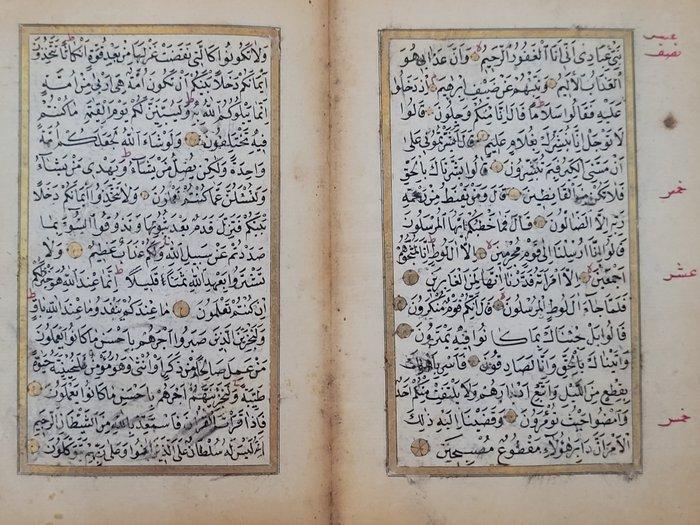 نَبِّئْ عِبَادِي أَنِّي أَنَا الْغَفُورُ الرَّحِيمُ وَأَنَّ عَذَابِي هُوَ
الْعَذَابُ الْأَلِيمُ وَنَبِّئْهُمْ عَنْ ضَيْفِ إِبْرَهِيمَ إِذْ دَخَلُوا
عَلَيْهِ فَقَالُوا سَلَامًا قَالَ إِنَّا مِنْكُمْ وَجِلُونَ قَالُوا
لَا تَوْجَلْ إِنَّا نُبَشِّرُكَ بِغُلَامٍ عَلِيمٍ قَالَ أَبَشَّرْتُمُونِي عَلَى
أَنْ مَسَّنِيَ الْكِبَرُ فَبِمَ تُبَشِّرُونَ قَالُوا بَشَّرْنَاكَ بِالْحَقِّ
فَلَا تَكُنْ مِنَ الْقَانِطِينَ قَالَ وَمَنْ يَقْنَطُ مِنْ رَحْمَةِ
رَبِّهِ إِلَّا الضَّالُّونَ قَالَ فَمَا خَطْبُكُمْ أَيُّهَا الْمُرْسَلُونَ
قَالُوا إِنَّا أُرْسِلْنَا إِلَى قَوْمٍ مُجْرِمِينَ إِلَّا آلَ لُوطٍ إِنَّا لَمُنَجُّوهُمْ
أَجْمَعِينَ إِلَّا امْرَأَتَهُ قَدَّرْنَا إِنَّهَا لَمِنَ الْغَابِرِينَ
فَلَمَّا جَاءَ آلَ لُوطٍ الْمُرْسَلُونَ قَالَ إِنَّكُمْ قَوْمٌ مُنْكَرُونَ
قَالُوا بَلْ جِئْنَاكَ بِمَا كَانُوا فِيهِ يَمْتَرُونَ
وَأَتَيْنَاكَ بِالْحَقِّ وَإِنَّا لَصَادِقُونَ فَأَسْرِ بِأَهْلِكَ
بِقِطْعٍ مِنَ اللَّيْلِ وَاتَّبِعْ أَدْبَارَهُمْ وَلَا يَلْتَفِتْ مِنْكُمْ أَحَدٌ
وَامْضُوا حَيْثُ تُؤْمَرُونَ وَقَضَيْنَا إِلَيْهِ ذَلِكَ
الْأَمْرَ أَنَّ دَابِرَ هَؤُلَاءِ مَقْطُوعٌ مُصْبِحِينَ
نصف
خمس
عشر
خمس
وَلَا تَكُونُوا كَالَّتِي نَقَضَتْ غَزْلَهَا مِنْ بَعْدِ قُوَّةٍ أَنْكَاثًا تَتَّخِذُونَ
أَيْمَانَكُمْ دَخَلًا بَيْنَكُمْ أَنْ تَكُونَ أُمَّةٌ هِيَ أَرْبَى مِنْ أُمَّةٍ
إِنَّمَا يَبْلُوكُمُ اللَّهُ بِهِ وَلَيُبَيِّنَنَّ لَكُمْ يَوْمَ الْقِيَمَةِ مَا كُنْتُمْ
فِيهِ تَخْتَلِفُونَ وَلَوْ شَاءَ اللَّهُ لَجَعَلَكُمْ أُمَّةً
وَاحِدَةً وَلَكِنْ يُضِلُّ مَنْ يَشَاءُ وَيَهْدِي مَنْ يَشَاءُ
وَلَتُسْئَلُنَّ عَمَّا كُنْتُمْ تَعْمَلُونَ وَلَا تَتَّخِذُوا أَيْمَانَكُمْ دَخَلًا
بَيْنَكُمْ فَتَزِلَّ قَدَمٌ بَعْدَ ثُبُوتِهَا وَتَذُوقُوا السُّوءَ بِمَا
صَدَدْتُمْ عَنْ سَبِيلِ اللَّهِ وَلَكُمْ عَذَابٌ عَظِيمٌ وَلَا
تَشْتَرُوا بِعَهْدِ اللَّهِ ثَمَنًا قَلِيلًا إِنَّمَا عِنْدَ اللَّهِ هُوَ خَيْرٌ لَكُمْ
إِنْ كُنْتُمْ تَعْلَمُونَ مَا عِنْدَكُمْ يَنْفَدُ وَمَا عِنْدَ اللَّهِ بَاقٍ
وَلَنَجْزِيَنَّ الَّذِينَ صَبَرُوا أَجْرَهُمْ بِأَحْسَنِ مَا كَانُوا يَعْمَلُونَ
مَنْ عَمِلَ صَالِحًا مِنْ ذَكَرٍ أَوْ أُنْثَى وَهُوَ مُؤْمِنٌ فَلَنُحْيِيَنَّهُ حَيَوةً
طَيِّبَةً وَلَنَجْزِيَنَّهُمْ أَجْرَهُمْ بِأَحْسَنِ مَا كَانُوا يَعْمَلُونَ
فَإِذَا قَرَأْتَ الْقُرْآنَ فَاسْتَعِذْ بِاللَّهِ مِنَ الشَّيْطَانِ الرَّجِيمِ
إِنَّهُ لَيْسَ لَهُ سُلْطَانٌ عَلَى الَّذِينَ آمَنُوا وَعَلَى رَبِّهِمْ يَتَوَكَّلُونَ